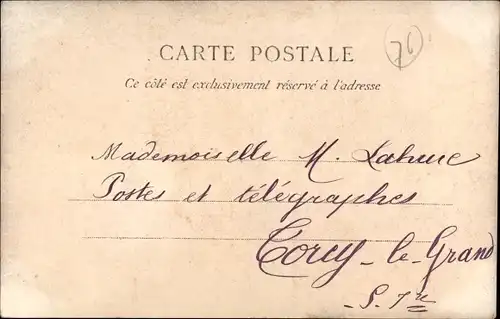 76
CARTE POSTALE
Ce côté est exclusivement réservé à l'adresse
Mademoiselle M. Lahure
Postes et télégraphes
Torcy-le-Grand
S. Ire